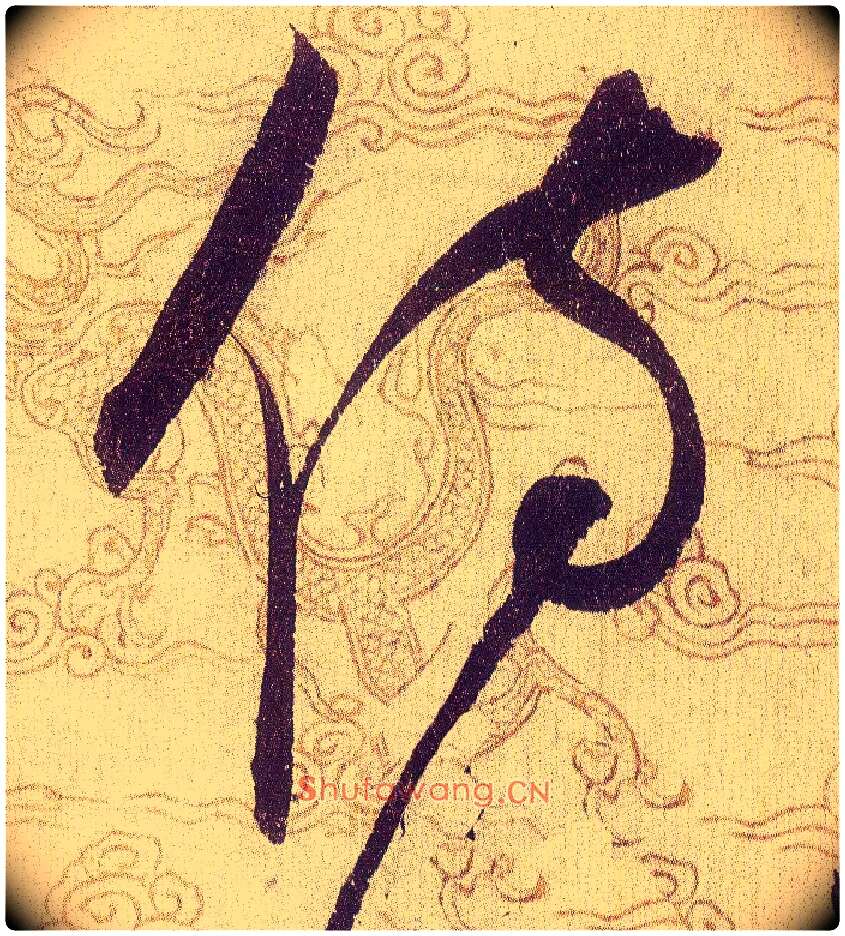 仍
Shufawang.CN